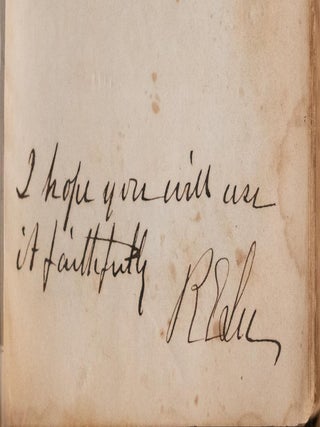 I hope you will use
it faithfully
R E Lee